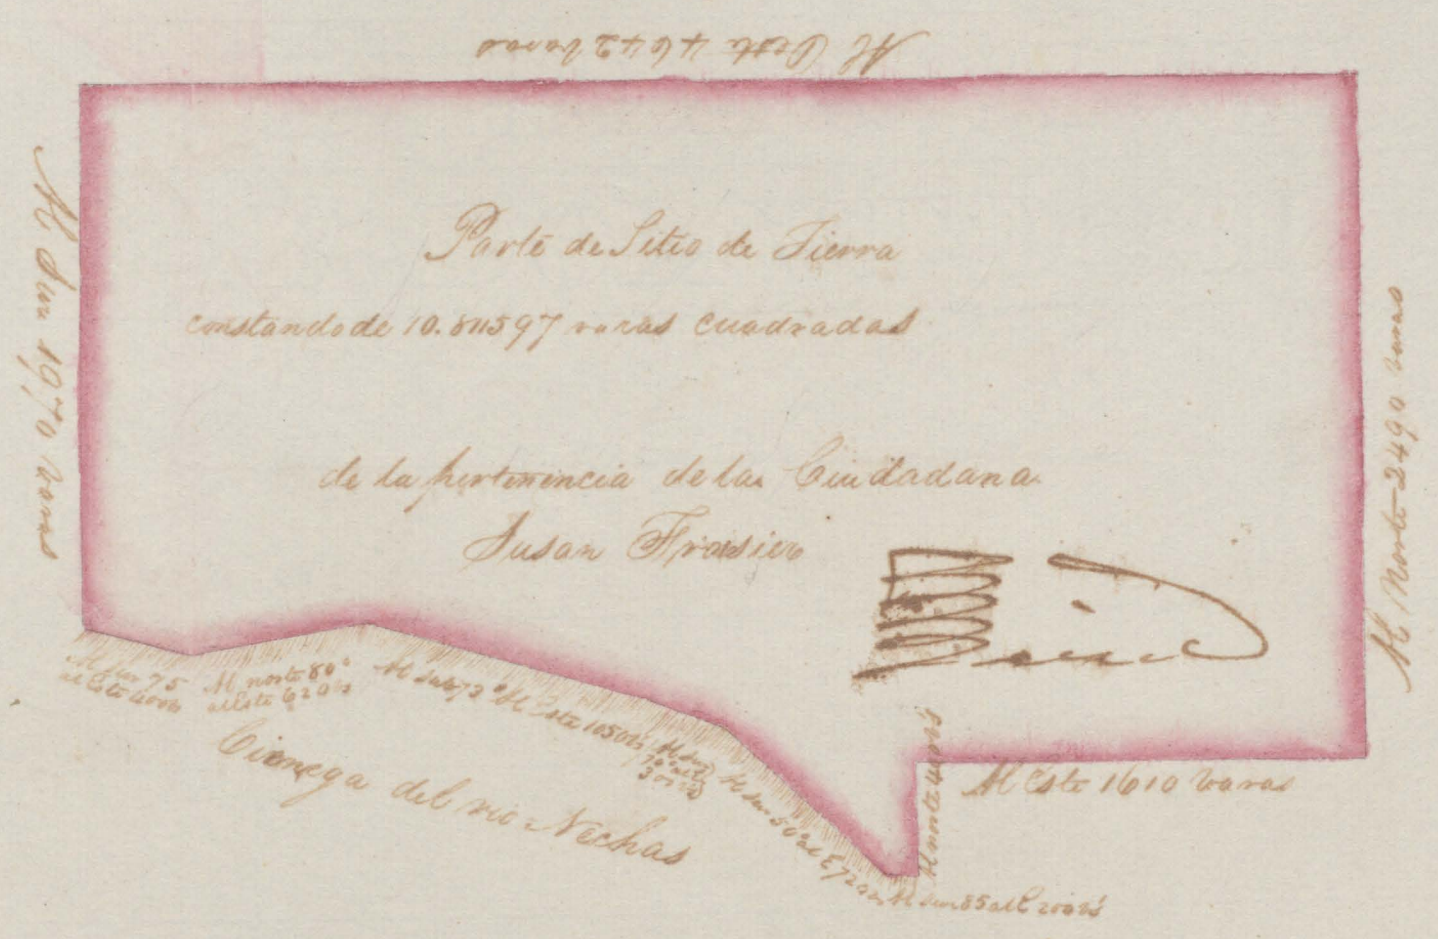 Al Oeste 4642 varas
Al Sur 1970 varas
Parte de Sitio de Tierra
constando de 10.811597 varas cuadradas
de la pertenencia de la Ciudadana
Susan Frasier
Al Norte 2490 varas
Al Sur 75
al Este 400
Al norte 80°
al Este 620 vs
Al Sur 73° Al Este 1050 vs
Al Sur
70° al E
Al Sur 50° al E 720 vs
Al norte
Al Este 1610 varas
Al sur 85 al E 200 vs
Cienega del rio Nechas